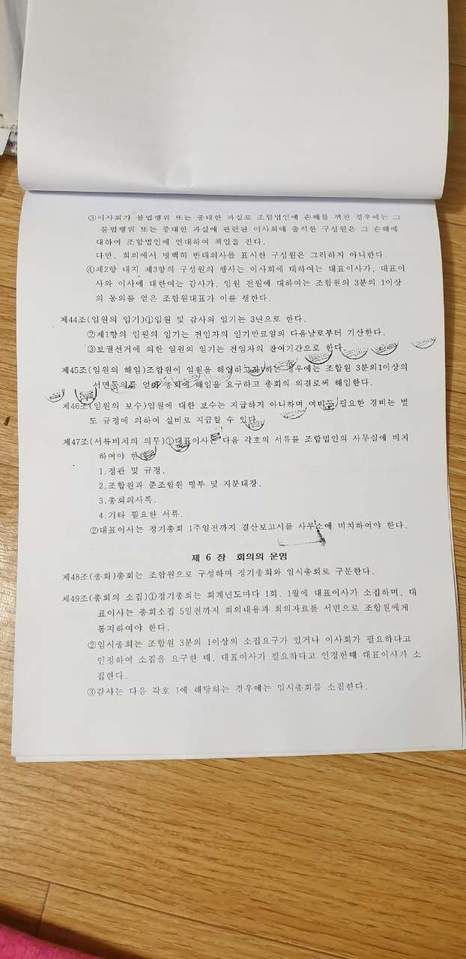 ③이사회가 불법행위 또는 중대한 과실로 조합법인에 손해를 끼친 경우에는 그
불법행위 또는 중대한 과실에 관련된 이사회에 출석한 구성원은 그 손해에
대하여 조합법인에 연대하여 책임을 진다.
다만, 회의에서 명백히 반대의사를 표시한 구성원은 그러하지 아니한다.
④제2항 내지 제3항의 구성원의 행사는 이사회에 대하여는 대표이사가, 대표이
사와 이사에 대한여는 감사가, 임원 전원에 대하여는 조합원의 3분의 1이상
의 동의를 얻은 조합원대표가 이를 행한다.
제44조(임원의 임기)①임원 및 감사의 임기는 3년으로 한다.
②제1항의 임원의 임기는 전임자의 임기만료일의 다음날로부터 기산한다.
③보궐선거에 의한 임원의 임기는 전임자의 잔여기간으로 한다.
제45조(임원의 해임)조합원이 임원을 해임하고자 하는 경우에는 조합원 3분의1이상의
서면동의를 얻어 총회에 해임을 요구하고 총회의 의결로써 해임한다.
제46조(임원의 보수)임원에 대한 보수는 지급하지 아니하며 여비등 필요한 경비는 별
도 규정에 의하여 실비로 지급할 수 있다.
제47조(서류비치의 의무)①대표이사는 다음 각호의 서류를 조합법인의 사무실에 비치
하여야 한다.
1.정관 및 규정.
2.조합원과 준조합원 명부 및 지분대장.
3.총회의사록.
4.기타 필요한 서류.
②대표이사는 정기총회 1주일전까지 결산보고서를 사무소에 비치하여야 한다.
제 6 장 회의의 운영
제48조(총회)총회는 조합원으로 구성하며 정기총회와 임시총회로 구분한다.
제49조(총회의 소집)①정기총회는 회계년도마다 1회, 1월에 대표이사가 소집하며, 대
표이사는 총회소집 5일전까지 회의내용과 회의자료를 서면으로 조합원에게
통지하여야 한다.
②임시총회는 조합원 3분의 1이상의 소집요구가 있거나 이사회가 필요하다고
인정하여 소집을 요구한 때, 대표이사가 필요하다고 인정한때 대표이사가 소
집한다.
③감사는 다음 각호 1에 해당하는 경우에는 임시총회를 소집한다.